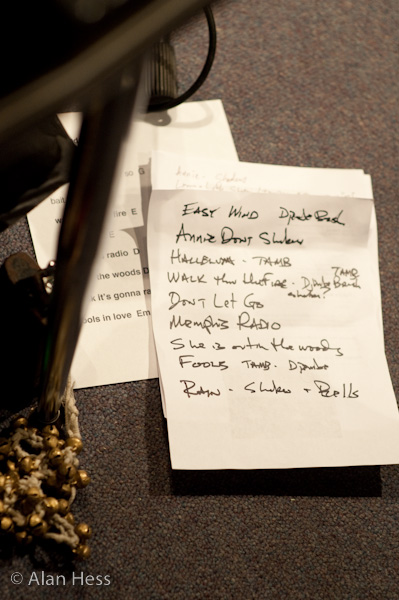 so G
bait
ire E
s radio D
the woods D
k it's gonna ra
ools in love Em
EASY WIND Djembe Brush
ANNIE DONT Shaker
HALLELUIA - TAMB
WALK thru the FIRE - Djembe Brush
TAMB
DONT LET GO
MEMPHIS RADIO
She is out in the woods
FOOLS TAMB - Djembe
RAIN - Shaker + Bells
© Alan Hess